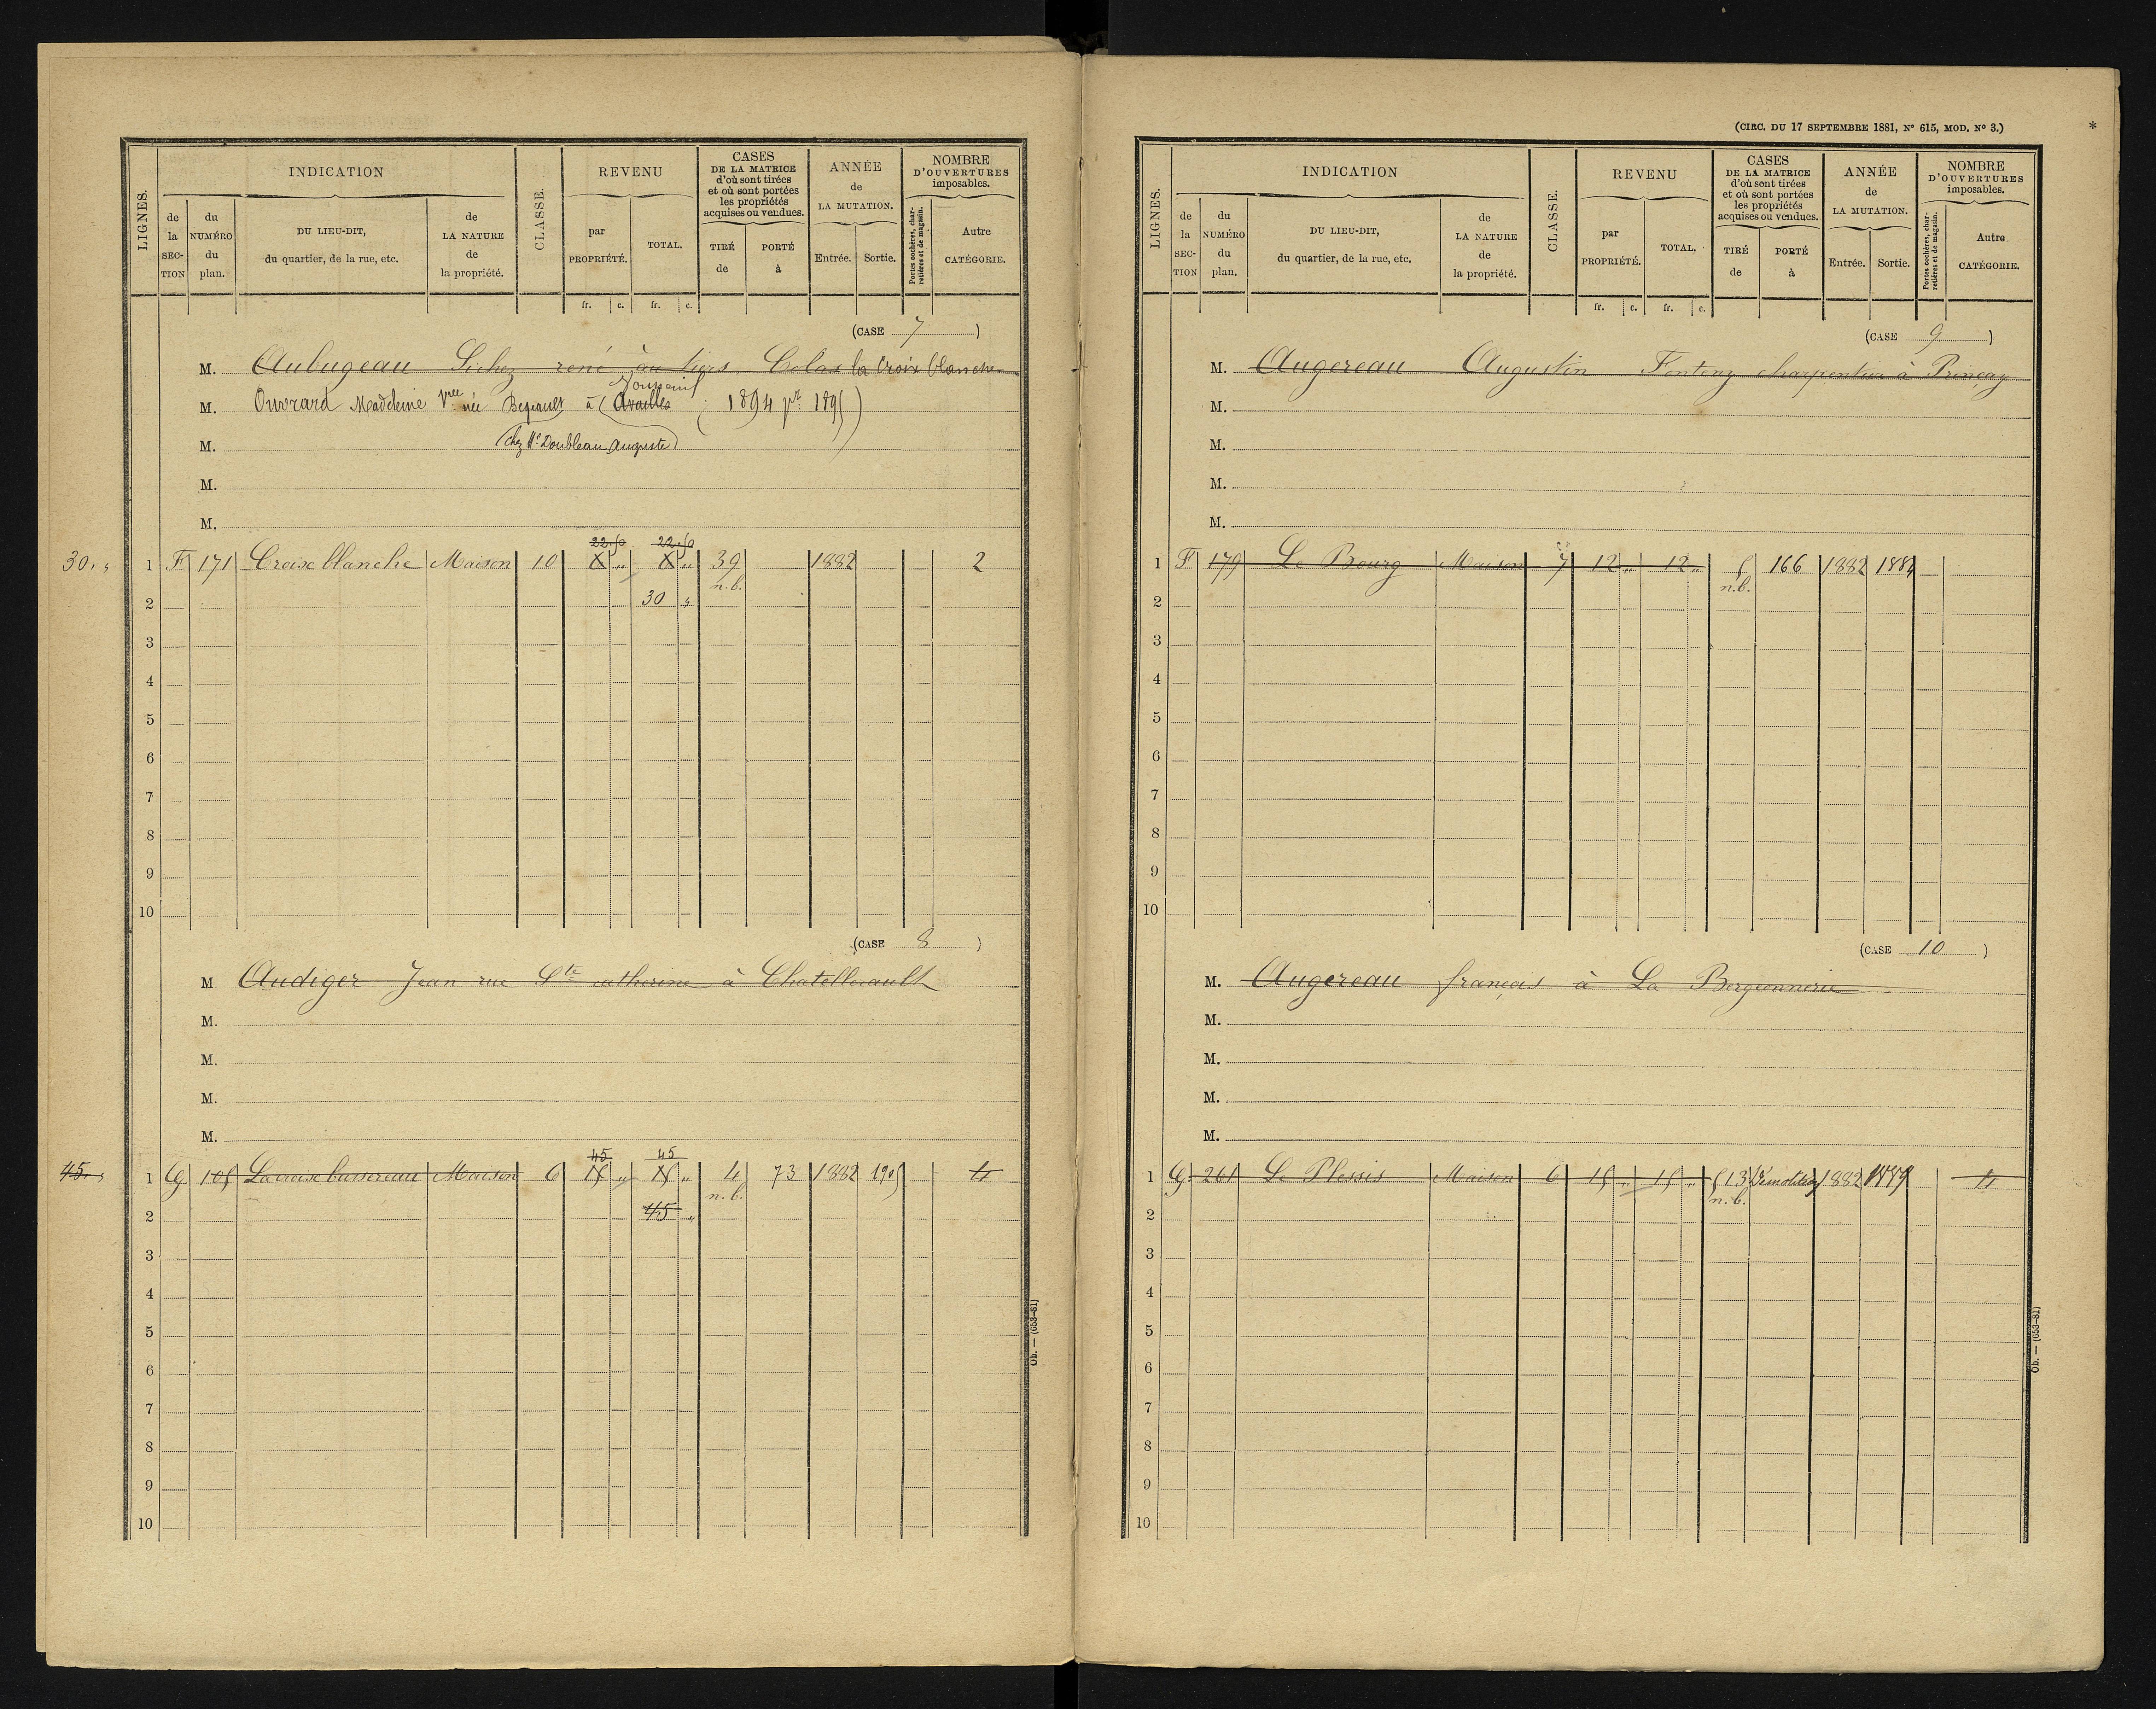 LIGNES.
INDICATION
de la SECTION
du NUMÉRO du plan.
DU LIEU-DIT, du quartier, de la rue, etc.
de LA NATURE de la propriété.
CLASSE.
REVENU
par PROPRIÉTÉ.
TOTAL.
CASES DE LA MATRICE d'où sont tirées et où sont portées les propriétés acquises ou vendues.
TIRÉ de
PORTÉ à
ANNÉE de LA MUTATION.
Entrée.
Sortie.
NOMBRE D'OUVERTURES imposables.
Portes cochères, charretières et de magasin.
Autre CATÉGORIE.
fr. c. fr. c.
(CASE 7)
M. Aubugeau Sichez rené au tiers Colas la Croix blanche
Jouneuil
M. Ouvrard Madeleine Vve née à Availles (1894 pr 1895)
M. (chez Mr Doubleau Auguste)
M.
M.
22.50 22.50
30. „ 1 F 171 Croix blanche Maison 10 X „ X „ 39 1882 2
n.b.
2 30 „
3
4
5
6
7
8
9
10
(CASE 8)
M Audiger Jean rue Ste catherine à Chatellerault
M.
M.
M.
M.
45 45
45. „ 1 G 105 La croix bussereau Maison 6 15 „ 15 „ 4 73 1882 1905 4
n.b.
2 45 „
3
4
5
6
7
8
9
10
Ob. — (653-81)
(CIRC. DU 17 SEPTEMBRE 1881, N° 615, MOD. N° 3.)
*
LIGNES.
INDICATION
de la SECTION
du NUMÉRO du plan.
DU LIEU-DIT, du quartier, de la rue, etc.
de LA NATURE de la propriété.
CLASSE.
REVENU
par PROPRIÉTÉ.
TOTAL.
CASES DE LA MATRICE d'où sont tirées et où sont portées les propriétés acquises ou vendues.
TIRÉ de
PORTÉ à
ANNÉE de LA MUTATION.
Entrée.
Sortie.
NOMBRE D'OUVERTURES imposables.
Portes cochères, charretières et de magasin.
Autre CATÉGORIE.
fr. c. fr. c.
(CASE 9)
M. Augereau Augustin Fonteny charpentier à Prinçay
M.
M.
M.
M.
1 F 179 Le Bourg Maison 7 12 „ 12 „ 166 1882 1884
n.b.
2
3
4
5
6
7
8
9
10
(CASE 10)
M. Augereau françois à La Bergeonnerie
M.
M.
M.
M.
1 G 261 Le Plessis Maison 6 15 „ 15 „ 513 Démolition 1882 4
n.b.
2
3
4
5
6
7
8
9
10
Ob. — (653-81)